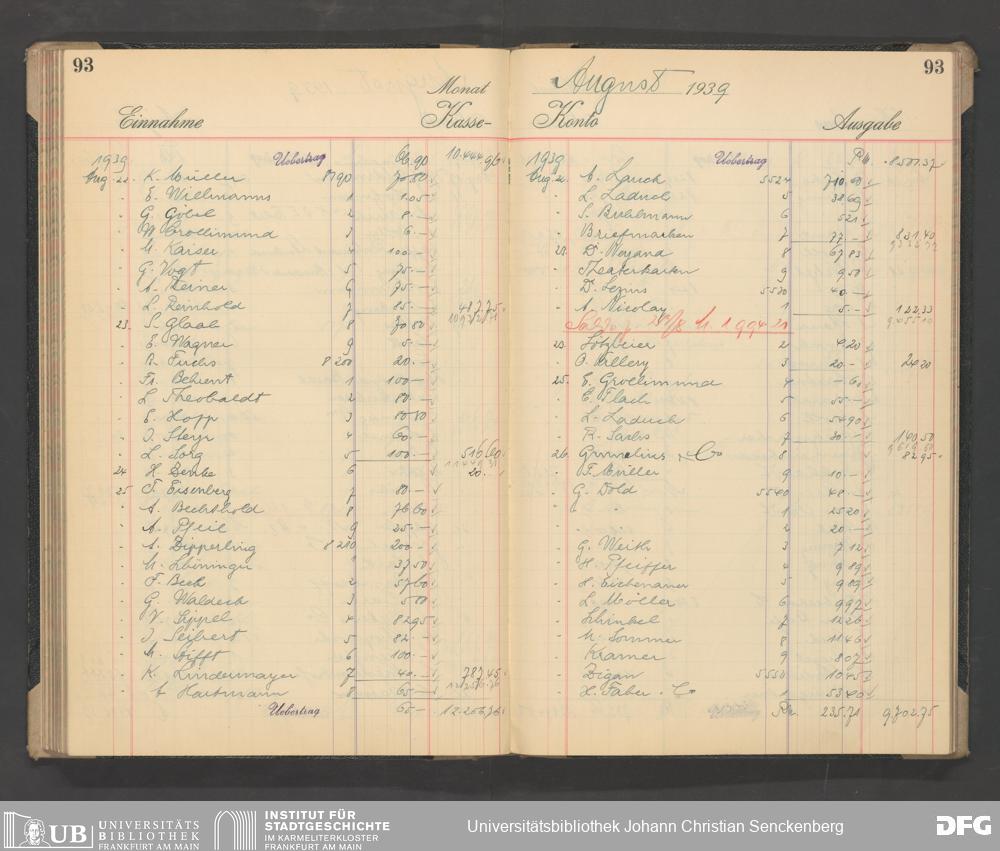 93
Monat
Einnahme Kasse-
1939 Uebertrag 66.90 10.444.96
Aug. 22. K. Müller 8190 70 50
E. Willmanns 1 1.05
G. Göbel 2 8.—
3 6.—
M. Kaiser 4 100.—
G. Vogt 5 75.—
A. Kerner 6 75.—
L. Reinhold 7 85.— 487.75
23. S. Glaab 8 70 50
E. Wagner 9 5.—
R. Fuchs 8200 20.—
Fr. Behrent 1 100.—
L. Theobaldt 2 80.—
E. Hopp 3 80 80
J. Steyr 4 60.—
L. Sorg 5 100.— 516.60
24. H. Benke 6 20.—
25. F. Eisenberg 7 80.—
A. Bechthold 8 76 60
A. Pfeil 9 25.—
A. Dipperling 8210 200.—
1 37 50
F. Beck 2 57 60
G. Waldeck 3 5 80
V. Sippel 4 82 95
J. Seibert 5 82.—
M. Stifft 6 100.—
K. Lindermayer 7 40.— 787.45
Hartmann 8 65.—
Uebertrag 65.— 12.256.76
93
August 1939
Konto Ausgabe
1939 Uebertrag RM 8507.37
Aug. 22. A. Lauck 5524 710.90
L. Laduch 5 38 69
S. Buhlmann 6 5 21
Briefmarken 7 77.— 831.40
23. D. Weyand 8 67 83
Theaterkarten 9 9 50
5530 40.—
A. Nicolay 1 5.— 122.33
M. 1994.21
23. 2 4 20
O. 3 20.— 24.20
25. E. Grollimund 4 —.60
E. Flach 5 55.—
L. Laduch 6 54 90
R. Sachs 7 30.— 140.50
26. Grumelius & Co 8 82.95
F. Müller 9 10.—
G. Dold 5540 48.—
1 25 20
2 20.—
G. Weith 3 7 12
H. Pfeiffer 4 9 89
H. Eichenauer 5 9 89
L. Möller 6 9 97
Schinkel 7 12 26
M. Sommer 8 11 46
Kramer 9 8 07
Zigan 5550 10 45
H. Faber & Co 1 53 40
RM. 235.71 9.702.75
UB UNIVERSITÄTS
BIBLIOTHEK
FRANKFURT AM MAIN
INSTITUT FÜR
STADTGESCHICHTE
IM KARMELITERKLOSTER
FRANKFURT AM MAIN
Universitätsbibliothek Johann Christian Senckenberg
DFG